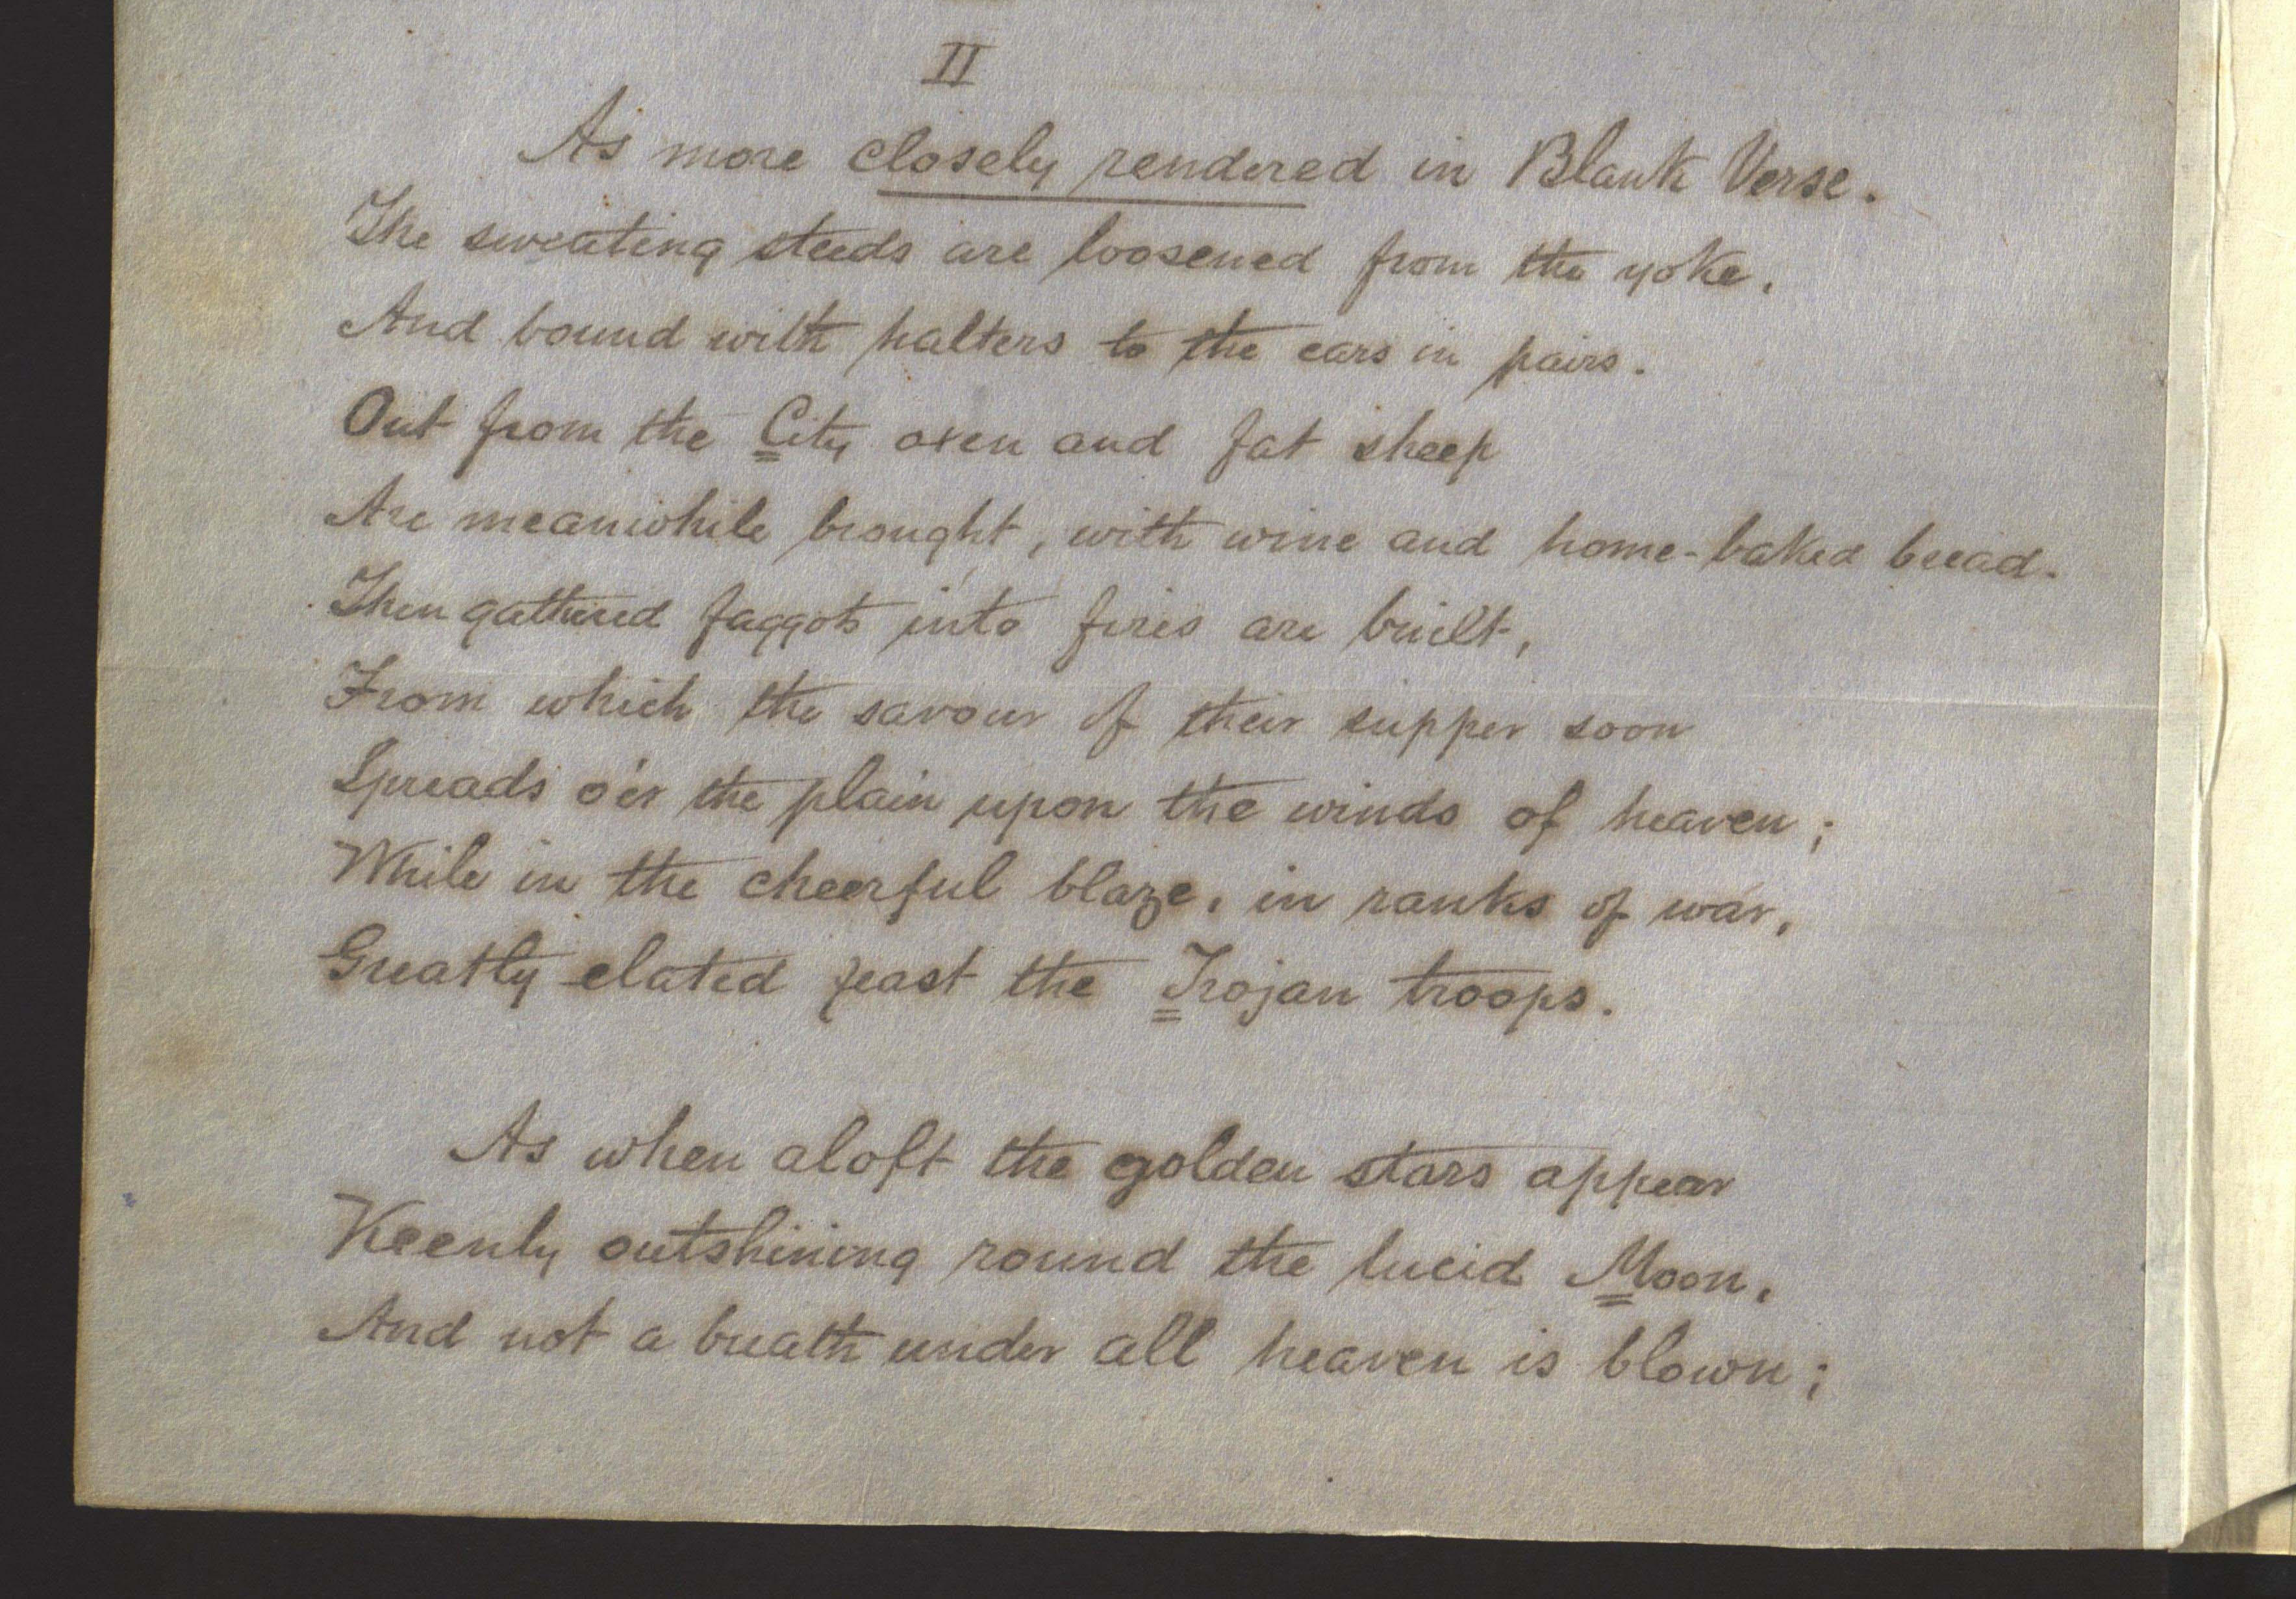 II
As more closely rendered in Blank Verse.
The sweating steeds are loosened from the yoke,
And bound with halters to the cars in pairs.
Out from the City oxen and fat sheep
Are meanwhile brought, with wine and home-baked bread.
Then gathered faggots into fires are built,
From which the savour of their supper soon
Spreads o'er the plain upon the winds of heaven;
While in the cheerful blaze, in ranks of war,
Greatly elated feast the Trojan troops.
As when aloft the golden stars appear
Keenly outshining round the lucid Moon,
And not a breath under all heaven is blown;